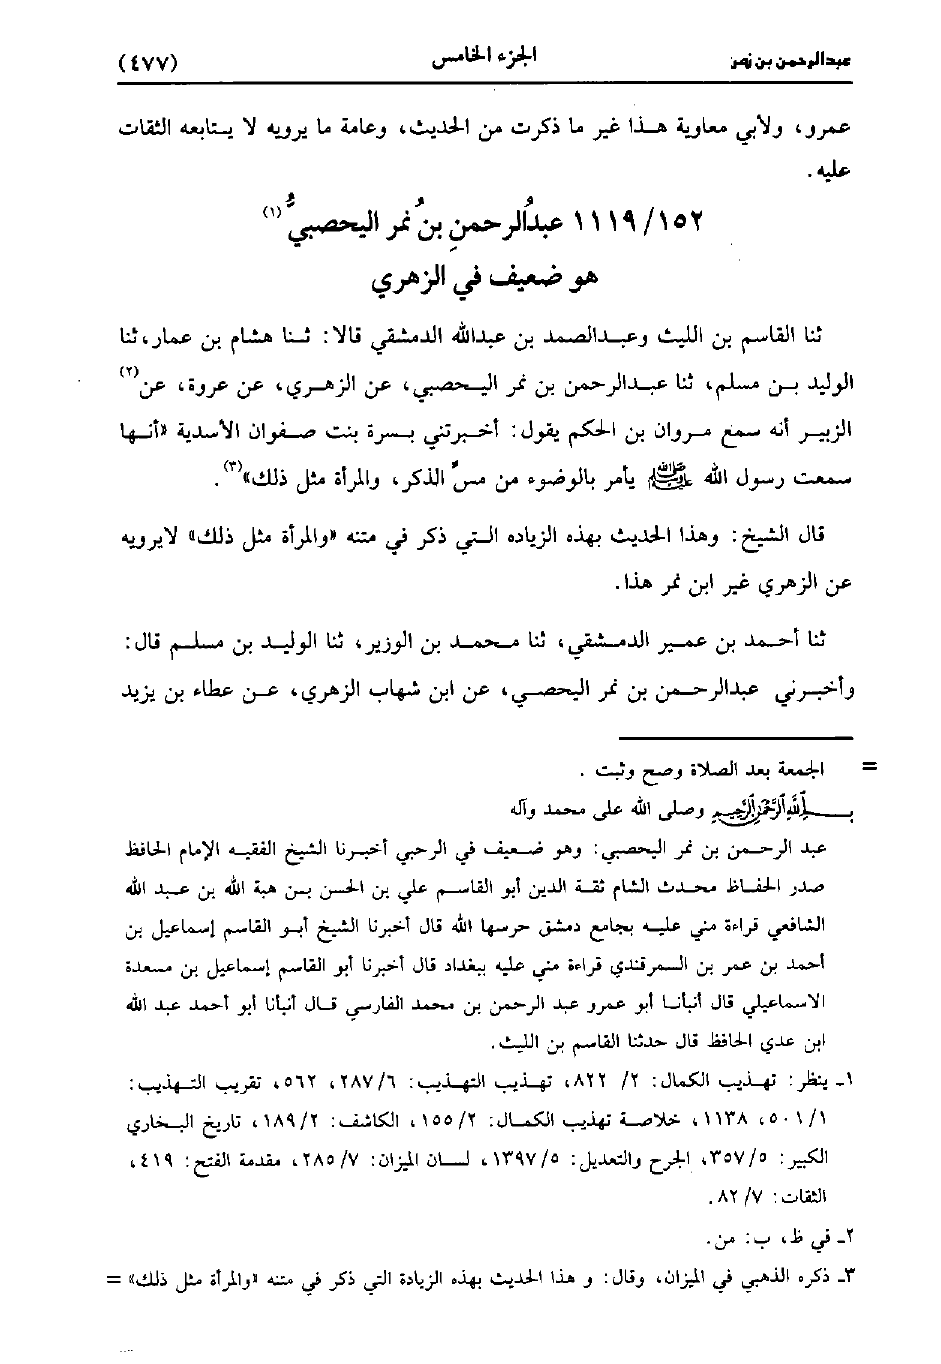 عبدالرحمن بن نمر
الجزء الخامس
(٤٧٧)
عمرو، ولأبي معاوية هذا غير ما ذكرت من الحديث، وعامة ما يرويه لا يتابعه الثقات
عليه.
١١١٩/١٥٢ عبدُالرحمنِ بنُ نمر اليحصبيُّ(١)
هو ضعيف في الزهري
ثنا القاسم بن الليث وعبدالصمد بن عبدالله الدمشقي قالا: ثنا هشام بن عمار، ثنا
الوليد بن مسلم، ثنا عبدالرحمن بن نمر اليحصبي، عن الزهري، عن عروة، عن(٢)
الزبير أنه سمع مروان بن الحكم يقول: أخبرتني بسرة بنت صفوان الأسدية «أنها
سمعت رسول الله ﷺ يأمر بالوضوء من مسِّ الذكر، والمرأة مثل ذلك»(٣).
قال الشيخ: وهذا الحديث بهذه الزياده التي ذكر في متنه «والمرأة مثل ذلك» لايرويه
عن الزهري غير ابن نمر هذا.
ثنا أحمد بن عمير الدمشقي، ثنا محمد بن الوزير، ثنا الوليد بن مسلم قال:
وأخبرني عبدالرحمن بن نمر اليحصبي، عن ابن شهاب الزهري، عن عطاء بن يزيد
= الجمعة بعد الصلاة وصح وثبت .
بسم الله الرحمن الرحيم وصلى الله على محمد وآله
عبد الرحمن بن نمر اليحصبي: وهو ضعيف في الرحبي أخبرنا الشيخ الفقيه الإمام الحافظ
صدر الحفاظ محدث الشام ثقة الدين أبو القاسم علي بن الحسن بن هبة الله بن عبد الله
الشافعي قراءة مني عليه بجامع دمشق حرسها الله قال أخبرنا الشيخ أبو القاسم إسماعيل بن
أحمد بن عمر بن السمرقندي قراءة مني عليه ببغداد قال أخبرنا أبو القاسم إسماعيل بن مسعدة
الاسماعيلي قال أنبأنا أبو عمرو عبد الرحمن بن محمد الفارسي قال أنبأنا أبو أحمد عبد الله
ابن عدي الحافظ قال حدثنا القاسم بن الليث.
١ـ ينظر: تهذيب الكمال: ٢/ ٨٢٢، تهذيب التهذيب: ٢٨٧/٦، ٥٦٢، تقريب التهذيب:
٥٠١/١، ١١٣٨، خلاصة تهذيب الكمال: ١٥٥/٢، الكاشف: ١٨٩/٢، تاريخ البخاري
الكبير: ٣٥٧/٥، الجرح والتعديل: ١٣٩٧/٥، لسان الميزان: ٢٨٥/٧، مقدمة الفتح: ٤١٩،
الثقات: ٨٢/٧.
٢ـ في ظ، ب: من.
٣ـ ذكره الذهبي في الميزان، وقال: و هذا الحديث بهذه الزيادة التي ذكر في متنه «والمرأة مثل ذلك» =